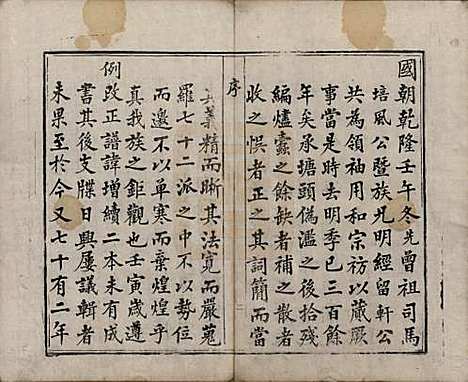 國朝乾隆壬午冬先曾祖司馬
培風公暨族兄明經留軒公
共為領袖用和宗祊以蕆厥
事當是時去明季巳三百餘
年矣承塘頭偽濫之後拾殘
編燼蠹之餘缺者補之散者
收之悞者正之其詞簡而當
序
其義精而晰其法寬而嚴蒐
羅七十二派之中不以勢位
而邊不以單寒而棄煌煌乎
真我族之鉅觀也壬寅歲遵
例改正譜諱增續二本未有成
書其後支牒日興屢議輯者
未果至於今又七十有二年